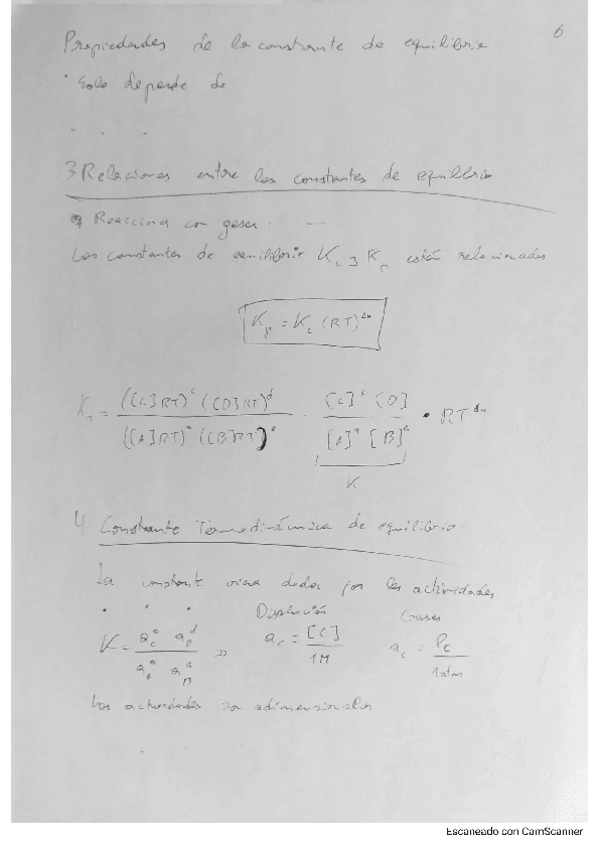 6
Propiedades de la constante de equilibrio
• Solo depende de
- - -
3 Relaciones entre las constantes de equilibrio
Reacciona con gases:
Las constantes de equilibrio Kc y Kp están relacionadas
Kp = Kc (RT)^Δn
Kp = (([C]RT)^c ([D]RT)^d) / (([A]RT)^a ([B]RT)^b) = [C]^c [D] / [A]^a [B]^b • RT^Δn
K
4 Constante Termodinámica de equilibrio
La constante viene dada por las actividades
• • •
Disolución Gases
K = a_C^c a_D^d / a_A^a a_B^b => a_c = [C] / 1M a_c = P_C / 1atm
Las actividades son adimensionales
Escaneado con CamScanner